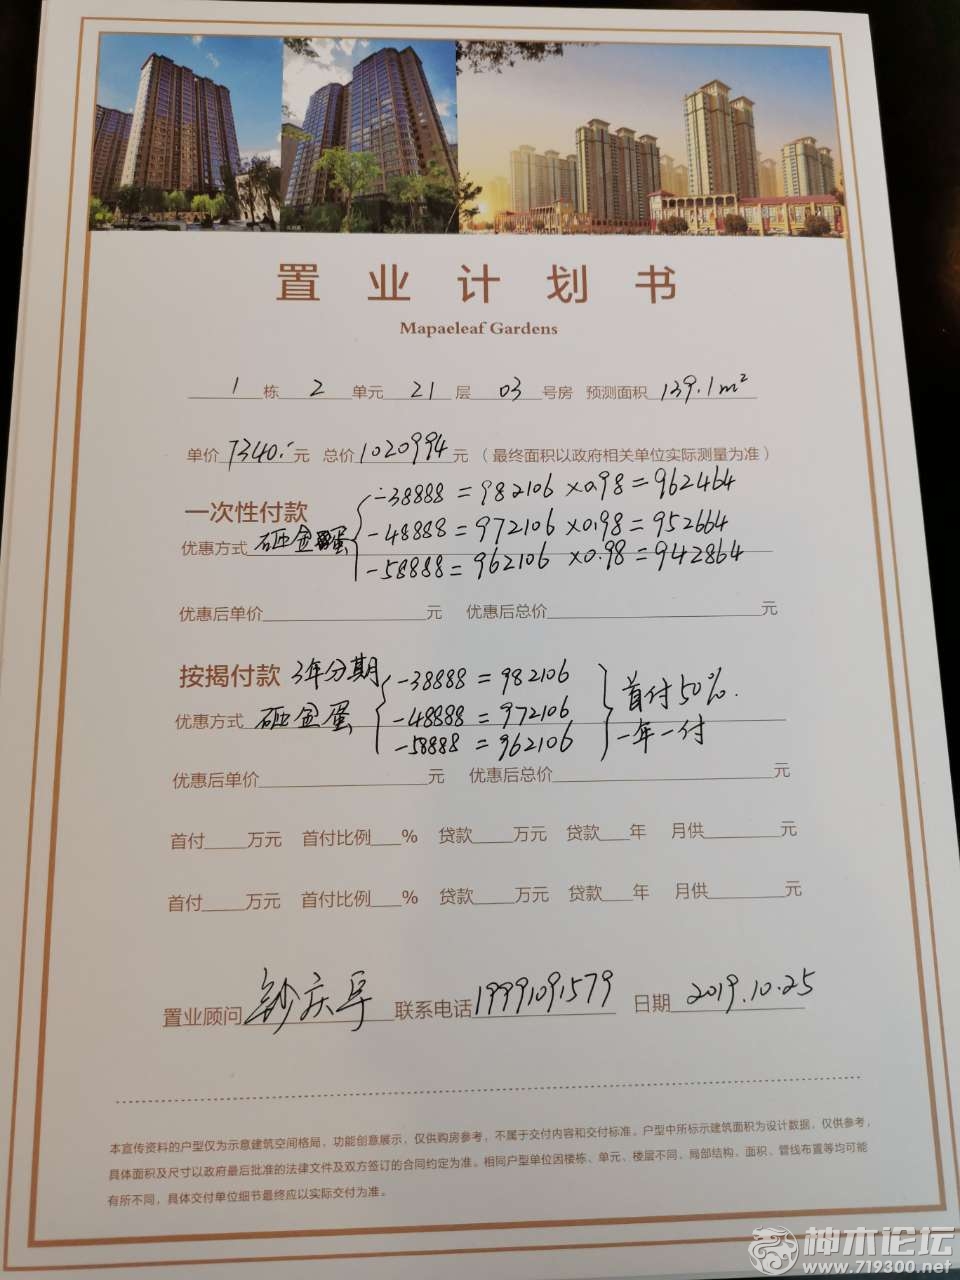 置业计划书
Mapaeleaf Gardens
1栋2单元21层03号房 预测面积139.1m²
单价7340.-元 总价1020994元（最终面积以政府相关单位实际测量为准）
一次性付款
-38888=982106×0.98=962464
优惠方式 砸金蛋 -48888=972106×0.98=952664
-58888=962106×0.98=942864
优惠后单价 元 优惠后总价 元
按揭付款 3年分期 -38888=982106
优惠方式 砸金蛋 -48888=972106 首付50%.
-58888=962106 一年一付
优惠后单价 元 优惠后总价 元
首付 万元 首付比例 % 贷款 万元 贷款 年 月供 元
首付 万元 首付比例 % 贷款 万元 贷款 年 月供 元
置业顾问 联系电话19991091579 日期2019.10.25
本宣传资料的户型仅为示意建筑空间格局，功能创意展示，仅供购房参考，不属于交付内容和交付标准。户型中所标示建筑面积为设计数据，仅供参考，
具体面积及尺寸以政府最后批准的法律文件及双方签订的合同约定为准。相同户型单位因楼栋、单元、楼层不同、局部结构、面积、管线布置等均可能
有所不同，具体交付单位细节最终应以实际交付为准。
神木论坛
www.719300.net